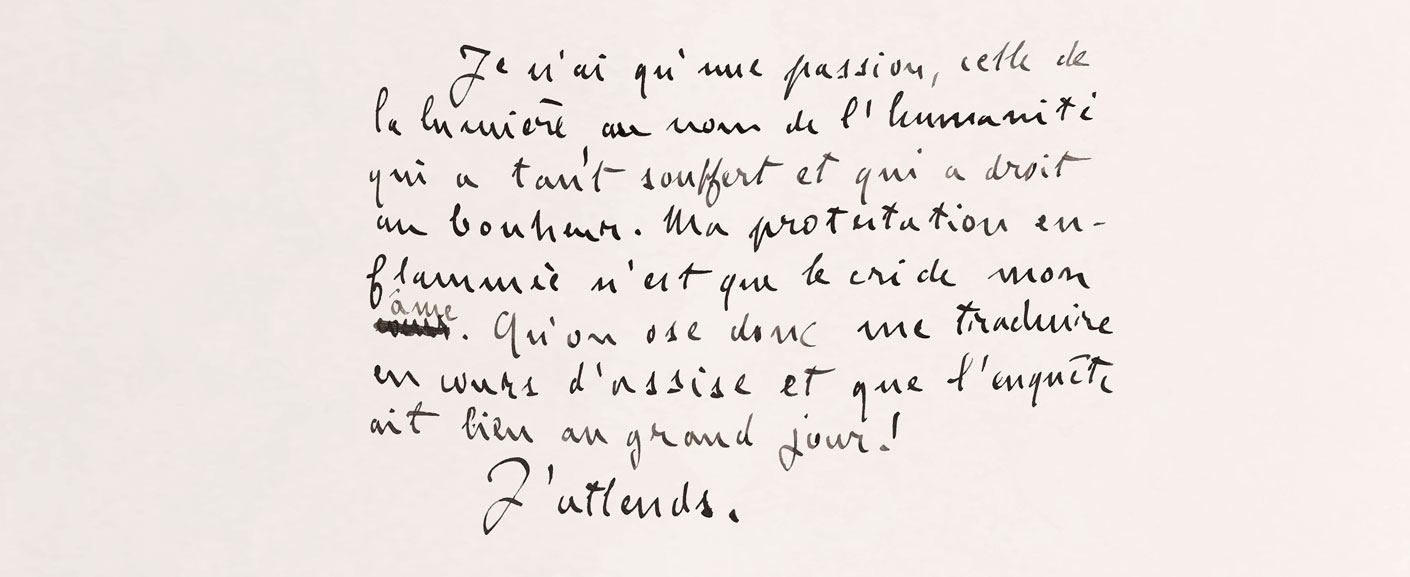 Je n'ai qu'une passion, celle de
la lumière, au nom de l'humanité
qui a tant souffert et qui a droit
au bonheur. Ma protestation en-
flammée n'est que le cri de mon
âme. Qu'on ose donc me traduire
en cours d'assise et que l'enquête
ait lieu au grand jour!
J'attends.